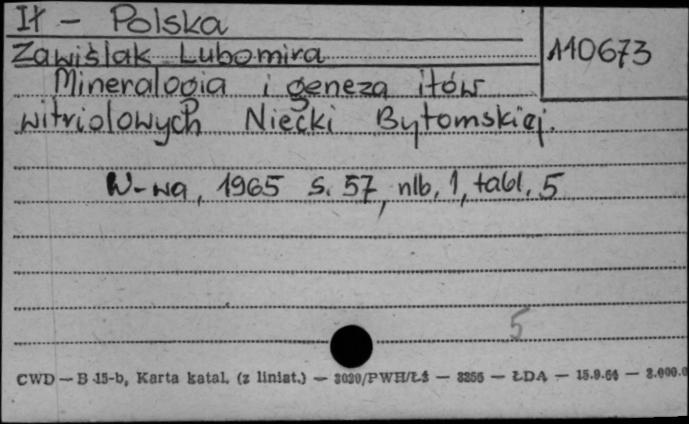 Ił - Polska
110673
Zawiślak Lubomira
Mineralogia i geneza iłów
witriolowych Niecki Bytomskiej.
W-wa, 1965 s. 57, nlb, 1, tabl. 5
5
CWD — B 15-b, Karta katal. (z liniat.) — 3030/PWH/Łś — 3256 — ŁDA — 15.9.64 —